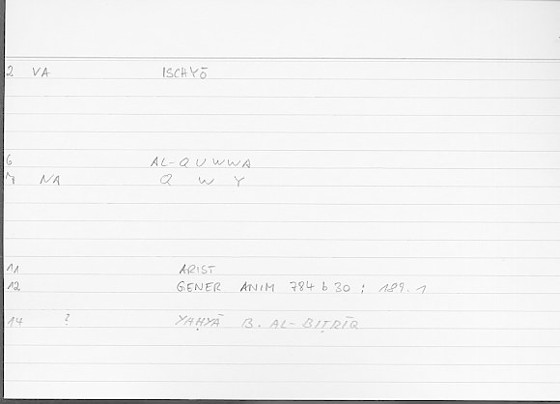 2 VA ISCHYŌ
6 AL-QUWWA
7 NA Q W Y
11 ARIST
12 GENER ANIM 784 b 30 : 189.1
14 ? YAḤYĀ B. AL-BIṬRĪQ